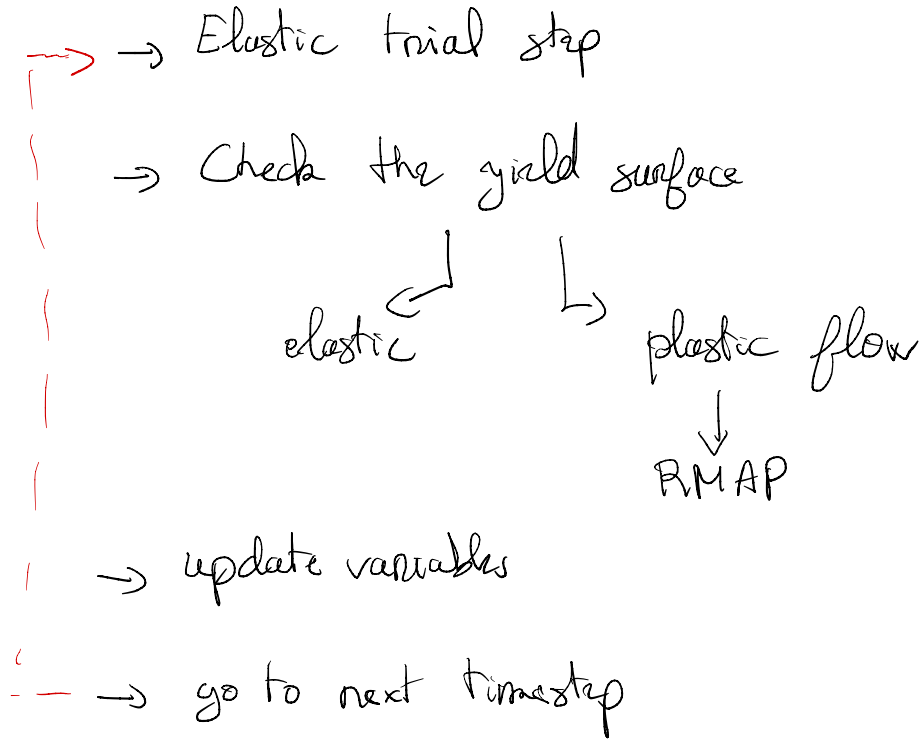 → Elastic trial step
→ Check the yield surface
elastic
plastic flow
RMAP
→ update variables
→ go to next timestep